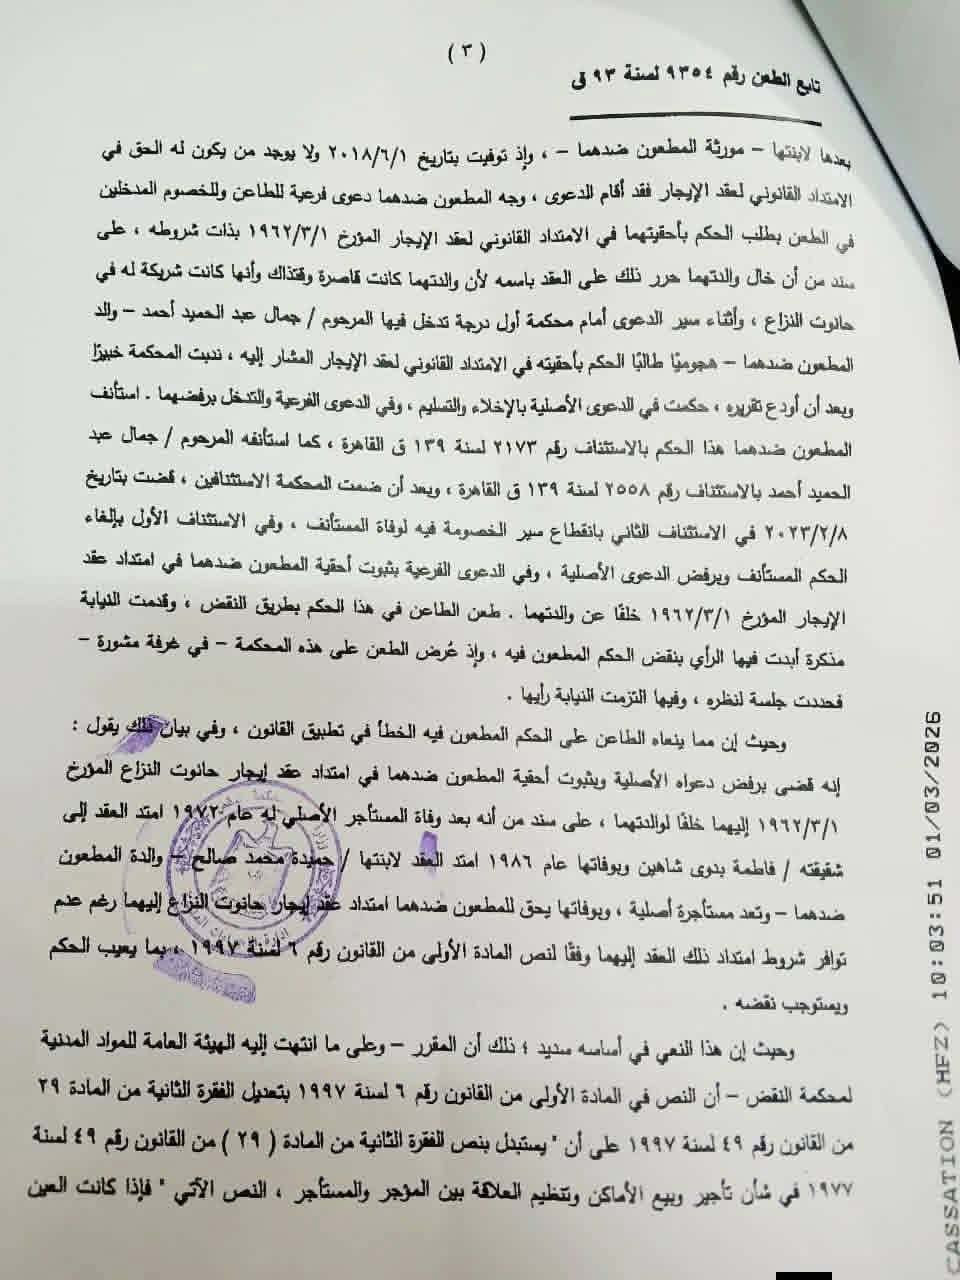 ( ٣ )
تابع الطعن رقم ٩٣٥٤ لسنة ٩٣ ق
بعدها لابنتها – مورثة المطعون ضدهما – ، وإذ توفيت بتاريخ ٢٠١٨/٦/١ ولا يوجد من يكون له الحق في
الامتداد القانوني لعقد الإيجار فقد أقام الدعوى ، وجه المطعون ضدهما دعوى فرعية للطاعن وللخصوم المدخلين
في الطعن بطلب الحكم بأحقيتهما في الامتداد القانوني لعقد الإيجار المؤرخ ١٩٦٢/٣/١ بذات شروطه ، على
سند من أن خال والدتهما حرر ذلك على العقد باسمه لأن والدتهما كانت قاصرة وقتذاك وأنها كانت شريكة له في
حانوت النزاع ، وأثناء سير الدعوى أمام محكمة أول درجة تدخل فيها المرحوم / جمال عبد الحميد أحمد – والد
المطعون ضدهما – هجوميًا طالبًا الحكم بأحقيته في الامتداد القانوني لعقد الإيجار المشار إليه ، ندبت المحكمة خبيرًا
وبعد أن أودع تقريره ، حكمت في الدعوى الأصلية بالإخلاء والتسليم ، وفي الدعوى الفرعية والتدخل برفضهما . استأنف
المطعون ضدهما هذا الحكم بالاستئناف رقم ٢١٧٣ لسنة ١٣٩ ق القاهرة ، كما استأنفه المرحوم / جمال عبد
الحميد أحمد بالاستئناف رقم ٢٥٥٨ لسنة ١٣٩ ق القاهرة ، وبعد أن ضمت المحكمة الاستئنافين ، قضت بتاريخ
٢٠٢٣/٢/٨ في الاستئناف الثاني بانقطاع سير الخصومة فيه لوفاة المستأنف ، وفي الاستئناف الأول بإلغاء
الحكم المستأنف وبرفض الدعوى الأصلية ، وفي الدعوى الفرعية بثبوت أحقية المطعون ضدهما في امتداد عقد
الإيجار المؤرخ ١٩٦٢/٣/١ خلفًا عن والدتهما . طعن الطاعن في هذا الحكم بطريق النقض ، وقدمت النيابة
مذكرة أبدت فيها الرأي بنقض الحكم المطعون فيه ، وإذ عُرض الطعن على هذه المحكمة – في غرفة مشورة –
فحددت جلسة لنظره ، وفيها التزمت النيابة رأيها .
وحيث إن مما ينعاه الطاعن على الحكم المطعون فيه الخطأ في تطبيق القانون ، وفي بيان ذلك يقول :
إنه قضى برفض دعواه الأصلية وبثبوت أحقية المطعون ضدهما في امتداد عقد إيجار حانوت النزاع المؤرخ
١٩٦٢/٣/١ إليهما خلفًا لوالدتهما ، على سند من أنه بعد وفاة المستأجر الأصلي له عام ١٩٧٢ امتد العقد إلى
شقيقته / فاطمة بدوى شاهين وبوفاتها عام ١٩٨٦ امتد العقد لابنتها / حميدة محمد صالح – والدة المطعون
ضدهما – وتعد مستأجرة أصلية ، وبوفاتها يحق للمطعون ضدهما امتداد عقد إيجار حانوت النزاع إليهما رغم عدم
توافر شروط امتداد ذلك العقد إليهما وفقًا لنص المادة الأولى من القانون رقم ٦ لسنة ١٩٩٧ ، بما يعيب الحكم
ويستوجب نقضه .
وحيث إن هذا النعي في أساسه سديد ؛ ذلك أن المقرر – وعلى ما انتهت إليه الهيئة العامة للمواد المدنية
لمحكمة النقض – أن النص في المادة الأولى من القانون رقم ٦ لسنة ١٩٩٧ بتعديل الفقرة الثانية من المادة ٢٩
من القانون رقم ٤٩ لسنة ١٩٩٧ على أن " يستبدل بنص الفقرة الثانية من المادة ( ٢٩ ) من القانون رقم ٤٩ لسنة
١٩٧٧ في شأن تأجير وبيع الأماكن وتنظيم العلاقة بين المؤجر والمستأجر ، النص الآتي " فإذا كانت العين
CASSATION (HFZ) 10:03:51 01/03/2026